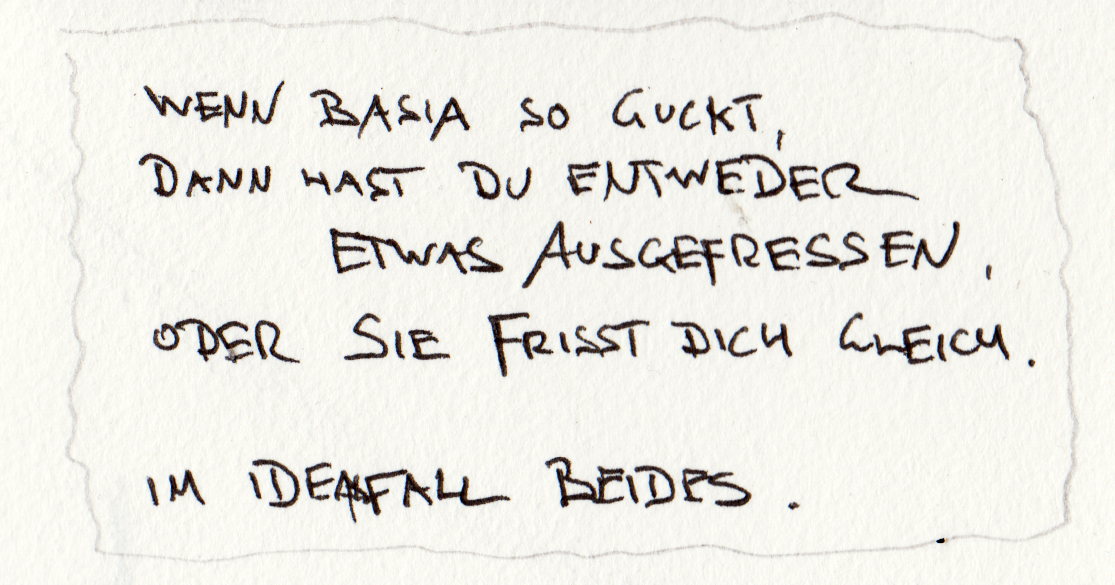 WENN BASIA SO GUCKT,
DANN HAST DU ENTWEDER
ETWAS AUSGEFRESSEN,
ODER SIE FRISST DICH GLEICH.
IM IDEALFALL BEIDES.